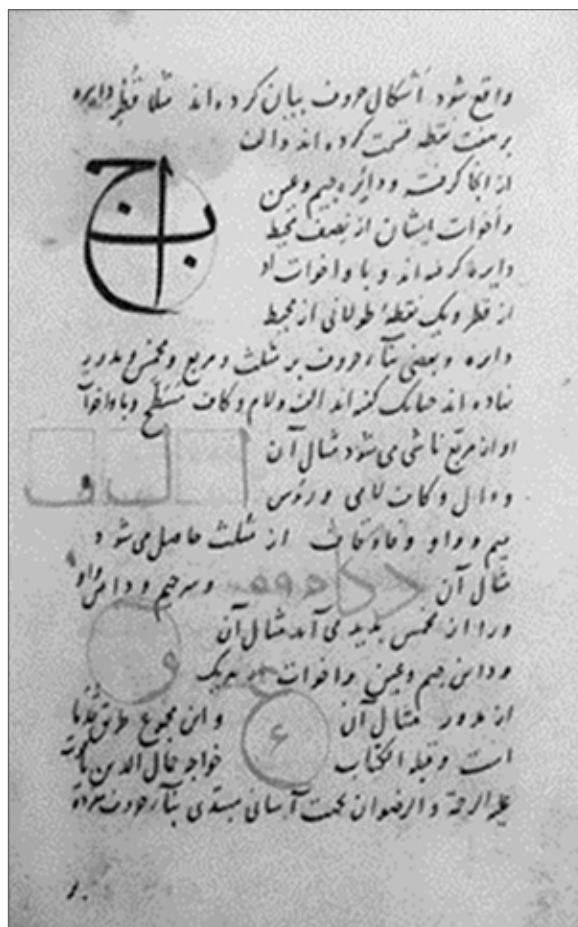 واقع شود اشکال حروف بیان کرده‌اند مثلا قطر دایره
بر هفت نقطه قسمت کرده‌اند و الف
از انجا گرفته و دایره جیم و عین
و اخوات ایشان از نصف محیط
دایره گرفته‌اند و با و اخوات او
از قطر و یک نقطه طولانی از محیط
دایره و بعضی بناء حروف بر مثلث و مربع و مخمس و مدور
نهاده‌اند چنانک گفته‌اند الف و لام و کاف مسطح و با و اخوات
او از مربع ناشی می‌شود مثال آن
و دال و کاف لامی و رؤس
میم و واو و فا و قاف از مثلث حاصل می‌شود
مثال آن و سر جیم و دامن واو
و را از مخمس پدید می‌آید مثال آن
و دامن جیم و عین و اخوات هر یک
از مدور مثال آن و این مجموع طریق
است و قبلة الکتاب خواجه جمال الدین یاقوت
علیه الرحمة و الرضوان بجهت آسانی مبتدی بناء حروف